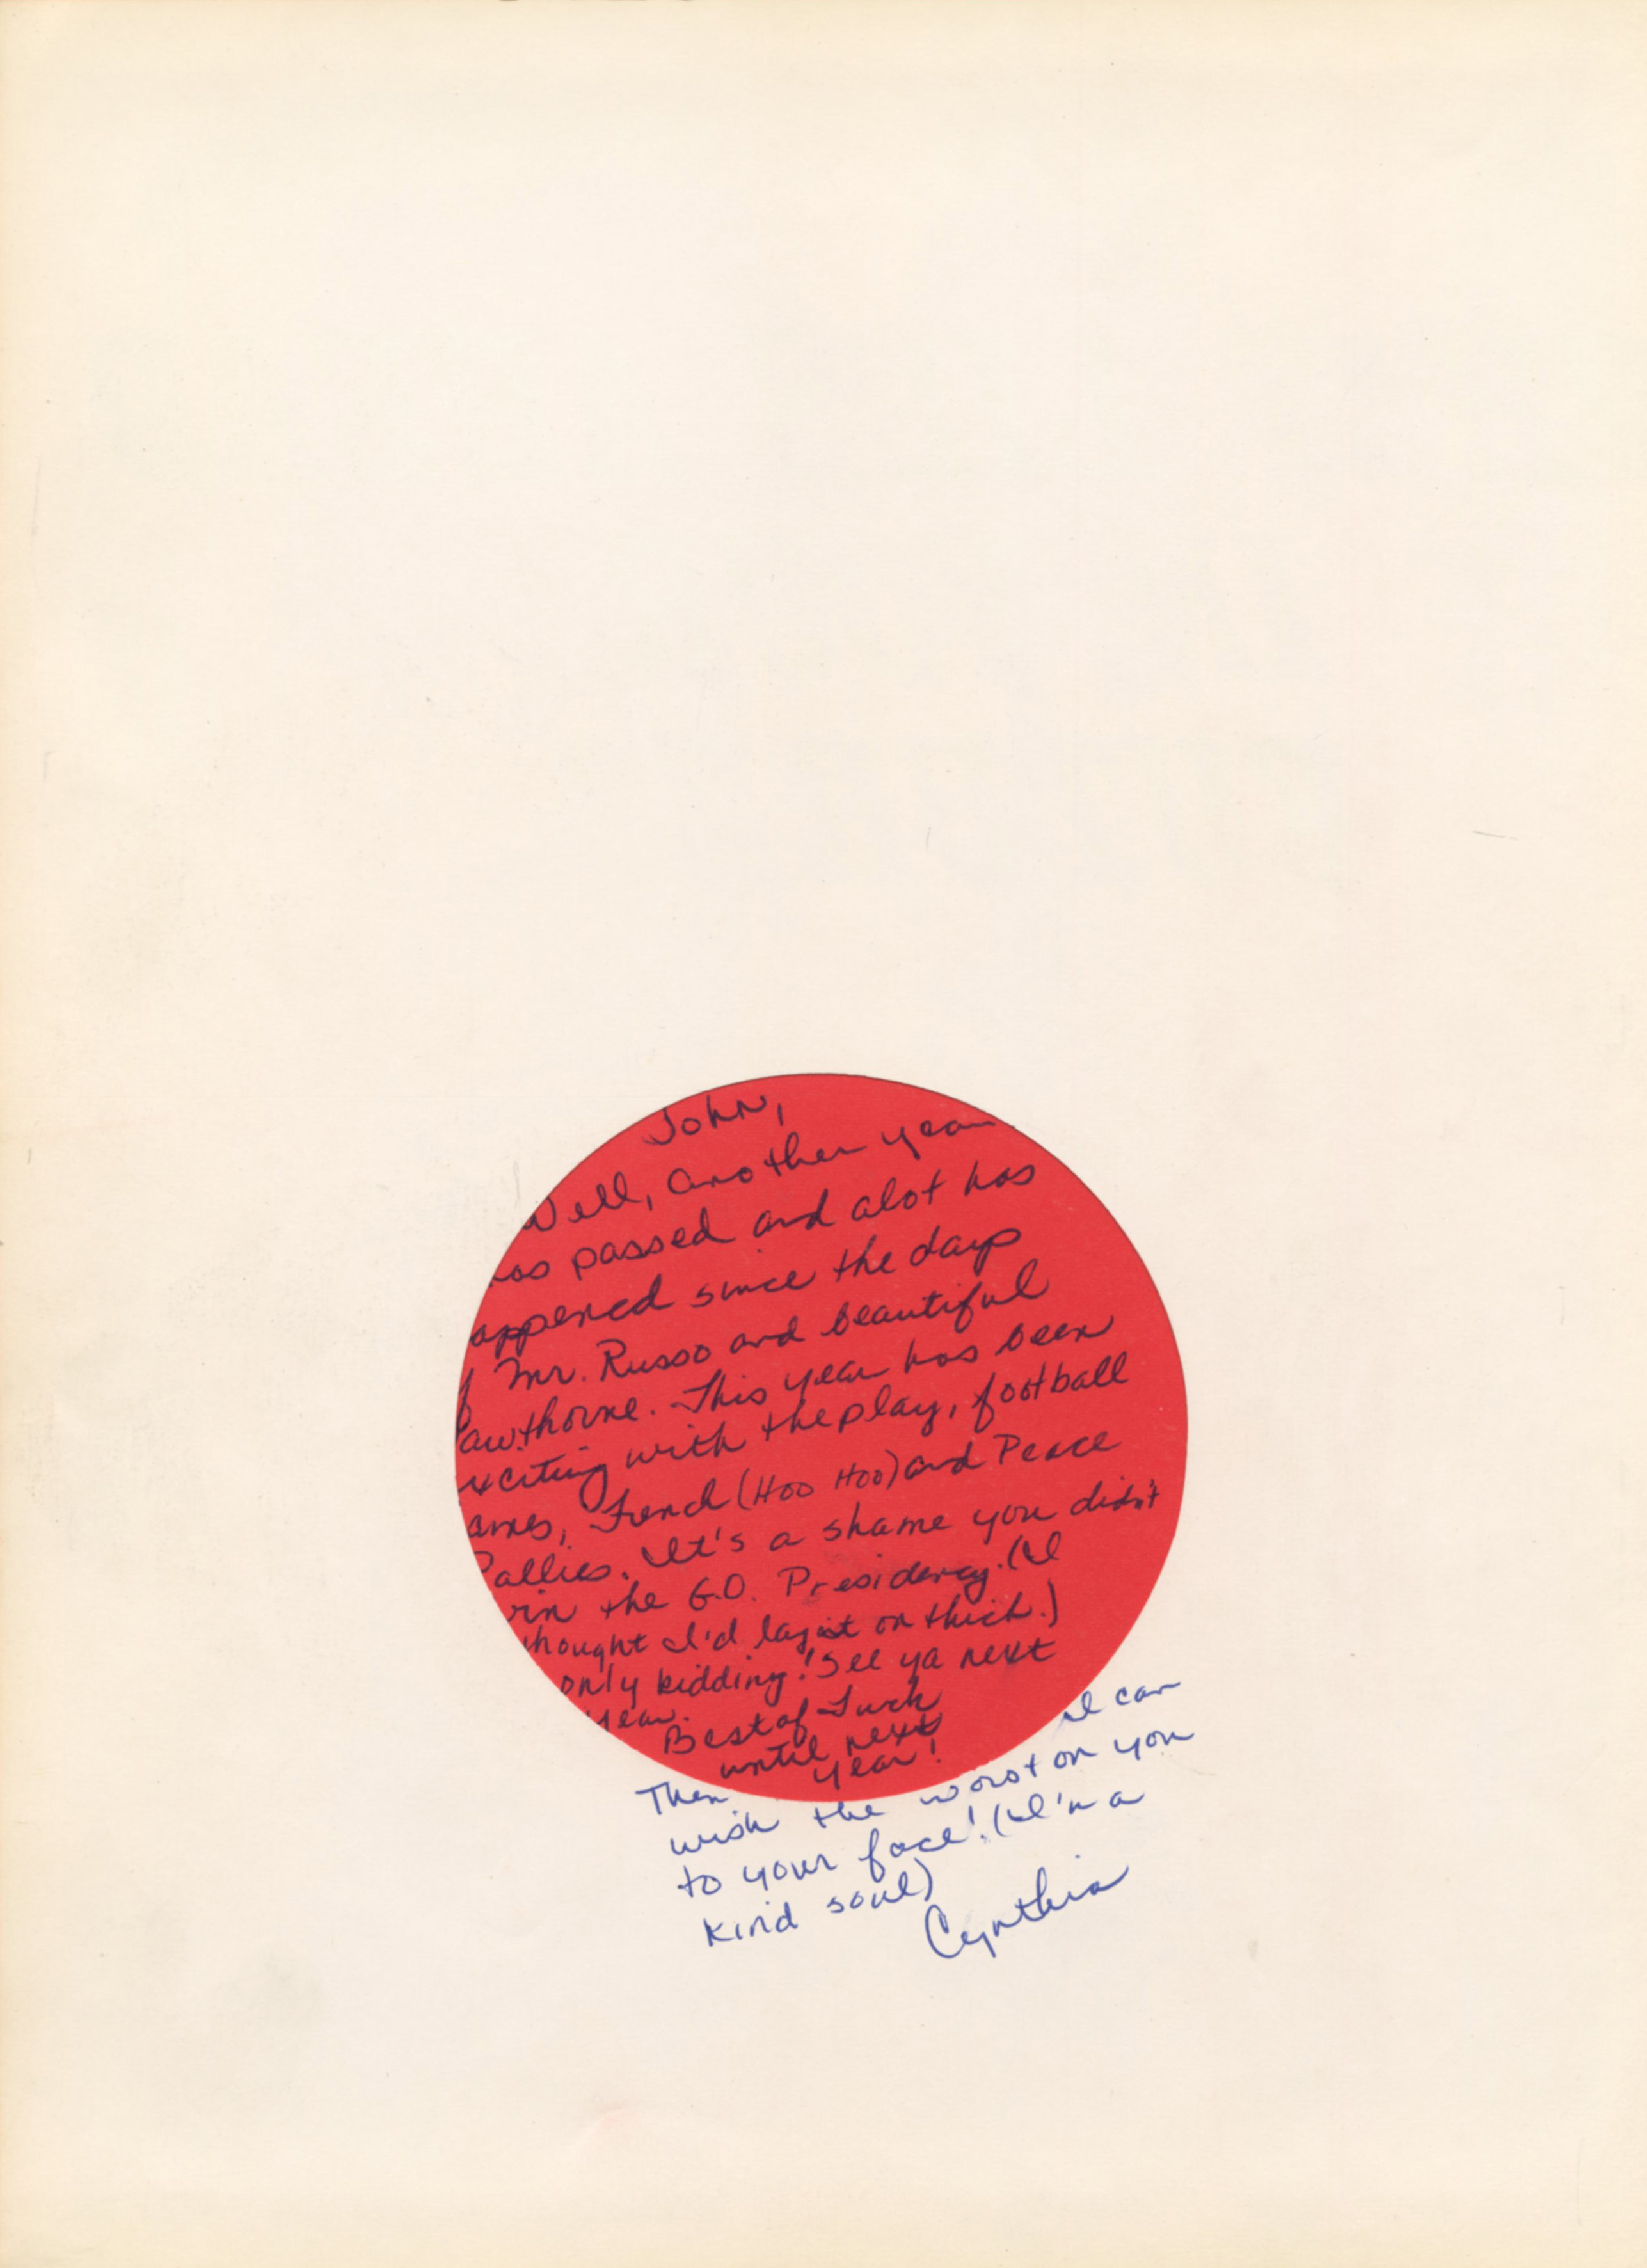 John,
Well, another year
has passed and alot has
appened since the days
f Mr. Russo and beautiful
awthorne. This year has been
xciting with the play, football
ames, French (Hoo Hoo) and Peace
Rallies. It's a shame you didn't
win the G.O. Presidency. (I
thought I'd lay it on thick.)
only kidding! See ya next
year.
Best of Luck
until next
year!
Then I can
wish the worst on you
to your face! (I'm a
kind soul)
Cynthia